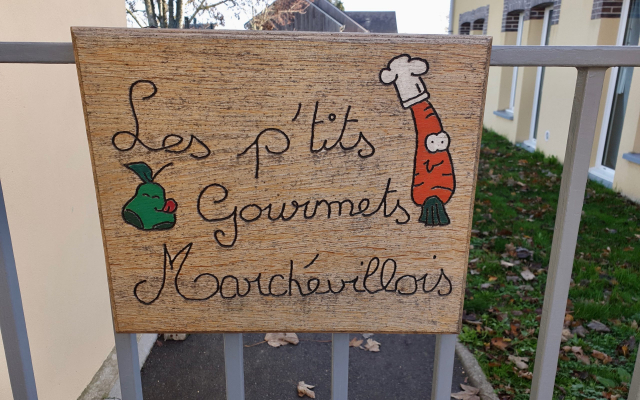 Les p'tits
Gourmets
Marchévillois